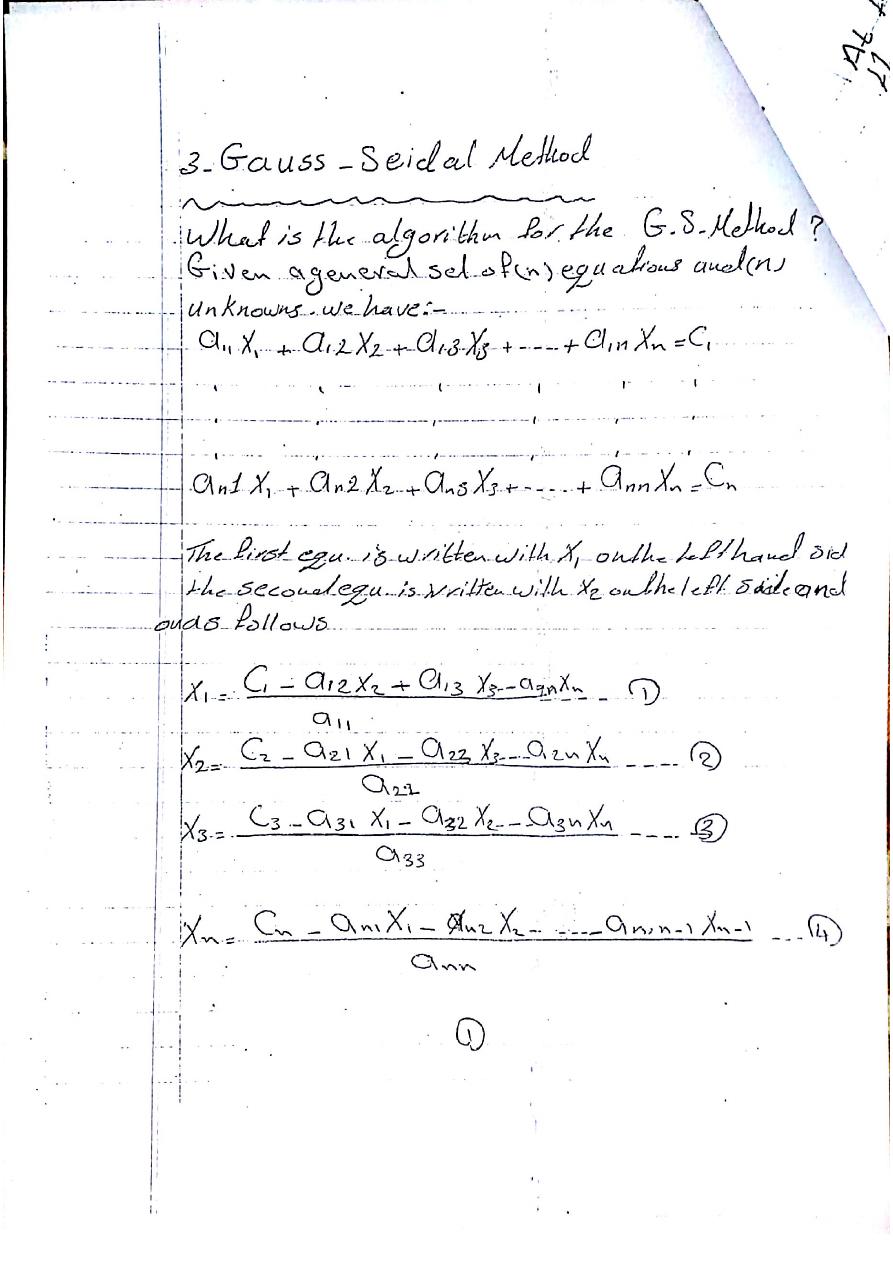 3- Gauss - Seidal Method
What is the algorithm for the G.S. Method?
Given a general set of (n) equations and (n)
unknowns. we have:-
a11 X1 + a12 X2 + a13 X3 + ---- + a1n Xn = C1
an1 X1 + an2 X2 + an3 X3 + ---- + ann Xn = Cn
The first equ. is written with X1 on the left hand sid
the second equ. is written with X2 on the left side and
follows
X1 = C1 - a12 X2 + a13 X3 -- Xn -- ①
a11
X2 = C2 - a21 X1 - a22 X3 --- a2n Xn ---- ②
X3 = C3 - a31 X1 - a32 X2 -- a3n Xn ---- ③
a33
Xn = Cn - an1 X1 - an2 X2 - ---- an,n-1 Xn-1 --- ④
ann
①